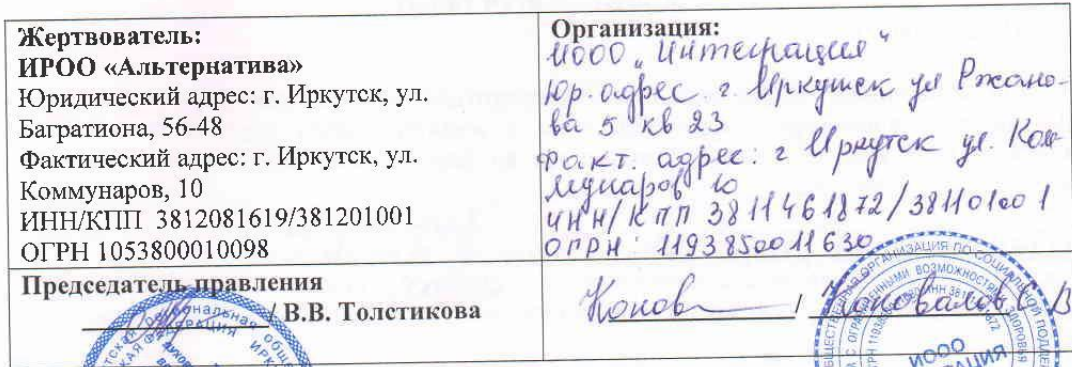 Жертвователь:
ИРОО «Альтернатива»
Юридический адрес: г. Иркутск, ул.
Багратиона, 56-48
Фактический адрес: г. Иркутск, ул.
Коммунаров, 10
ИНН/КПП 3812081619/381201001
ОГРН 1053800010098
Организация:
ИООО „Интеграция“
Юр. адрес г. Иркутск ул Ржано-
ва 5 кв 23
Факт. адрес: г Иркутск ул. Ком-
мунаров 10
ИНН/КПП 3811461872/381101001
ОГРН: 1193850011630
Председатель правления
/ В.В. Толстикова
Конов / Коновалов С В
ИООО